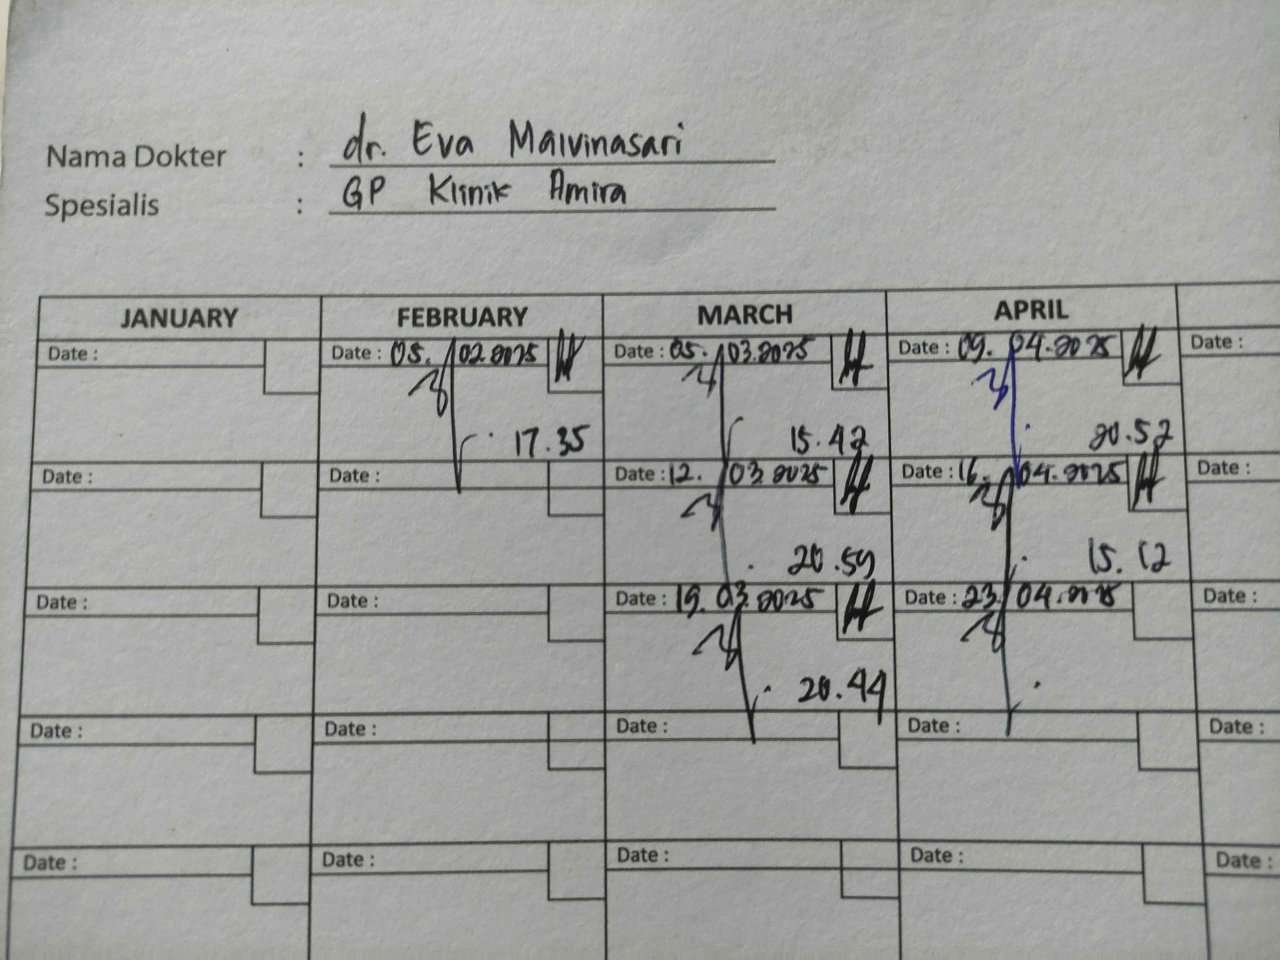 Nama Dokter : dr. Eva Malvinasari
Spesialis : GP Klinik Amira
JANUARY FEBRUARY MARCH APRIL
Date : Date : 05. 02.2025 Date : 05. 03.2025 Date : 09. 04.2025 Date :
17.35 15.42 20.52
Date : Date : Date : 12. 03.2025 Date : 16. 04.2025 Date :
20.59 15.12
Date : Date : Date : 19. 03.2025 Date : 23. 04.2025 Date :
20.44
Date : Date : Date : Date : Date :
Date : Date : Date : Date : Date :